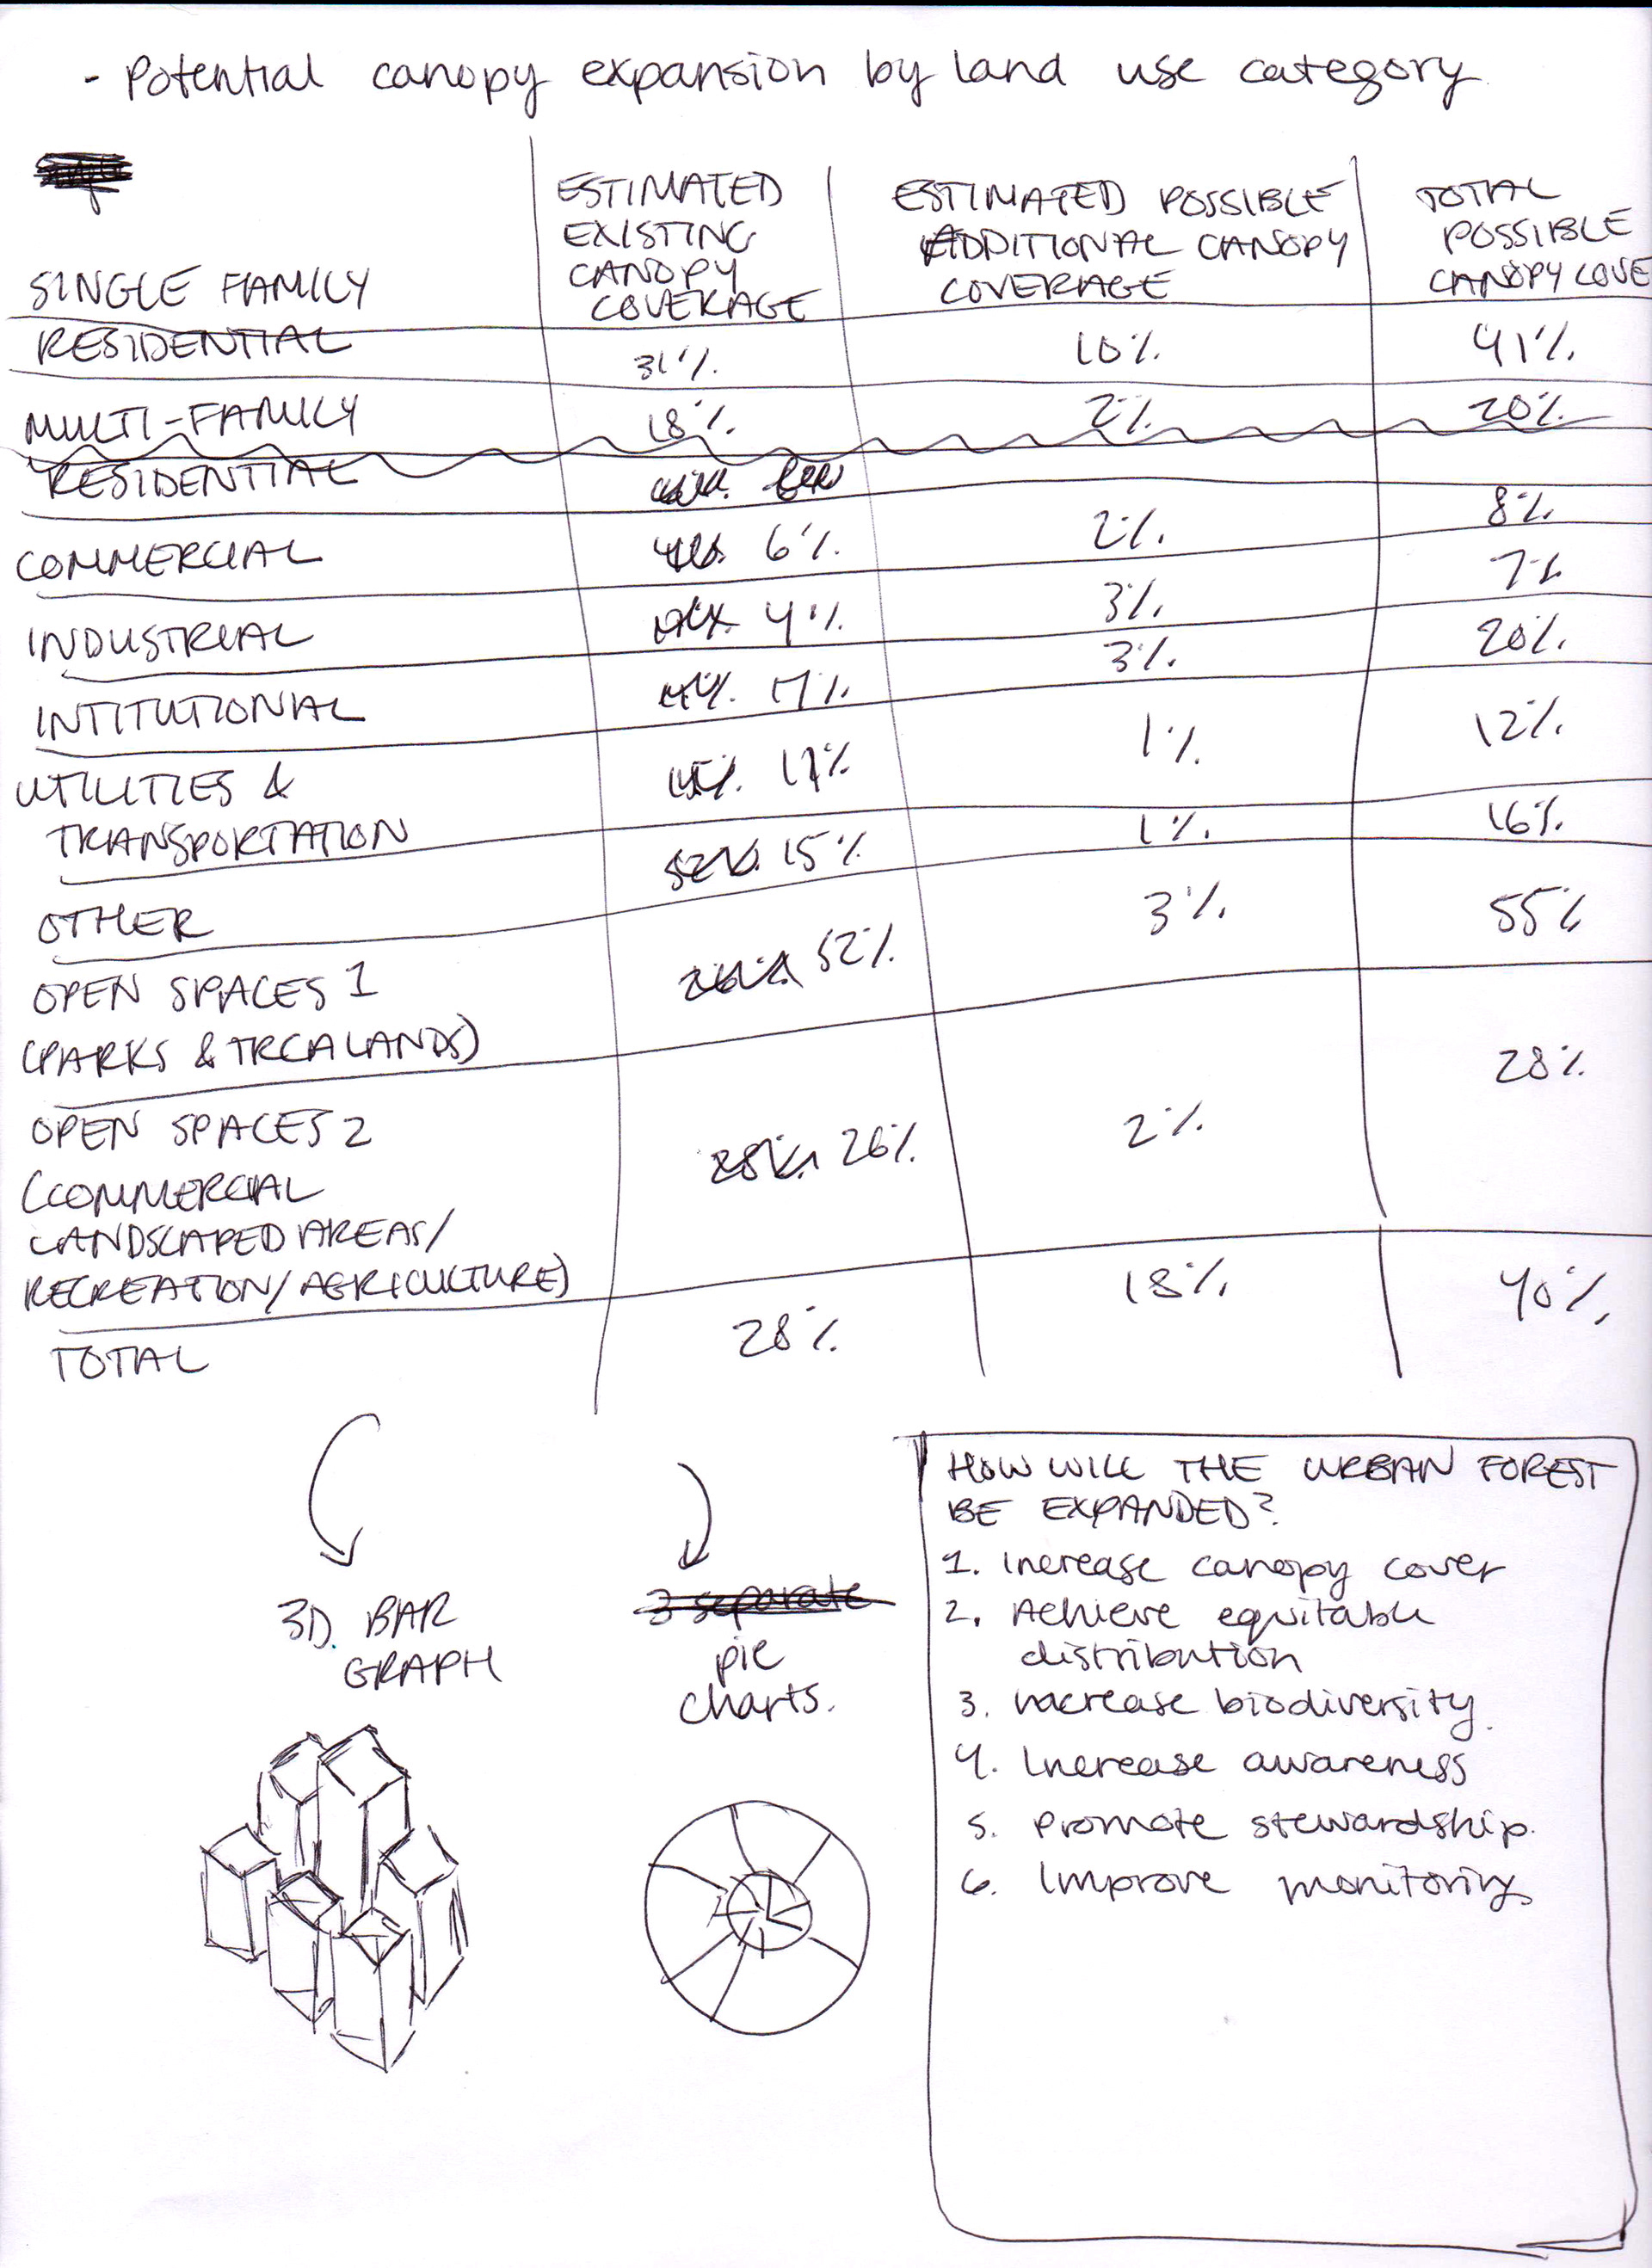 - Potential canopy expansion by land use category
ESTIMATED EXISTING CANOPY COVERAGE
ESTIMATED POSSIBLE ADDITIONAL CANOPY COVERAGE
TOTAL POSSIBLE CANOPY COVE
SINGLE FAMILY
RESIDENTIAL 31% 10% 41%
MULTI-FAMILY 18% 2% 20%
RESIDENTIAL
COMMERCIAL 6% 2% 8%
INDUSTRIAL 4% 3% 7%
INTITUTIONAL 17% 3% 20%
UTILITIES & 11% 1% 12%
TRANSPORTATION
OTHER 15% 1% 16%
OPEN SPACES 1 52% 3% 55%
(PARKS & TRCA LANDS)
OPEN SPACES 2 26% 2% 28%
(COMMERCIAL
LANDSCAPED AREAS/
RECREATION/AGRICULTURE)
TOTAL 28% 18% 40%
3D BAR
GRAPH
3 separate
pie
charts.
HOW WILL THE URBAN FOREST
BE EXPANDED?
1. Increase canopy cover
2. Achieve equitable
distribution
3. increase biodiversity.
4. Increase awareness
5. Promote stewardship.
6. Improve monitoring